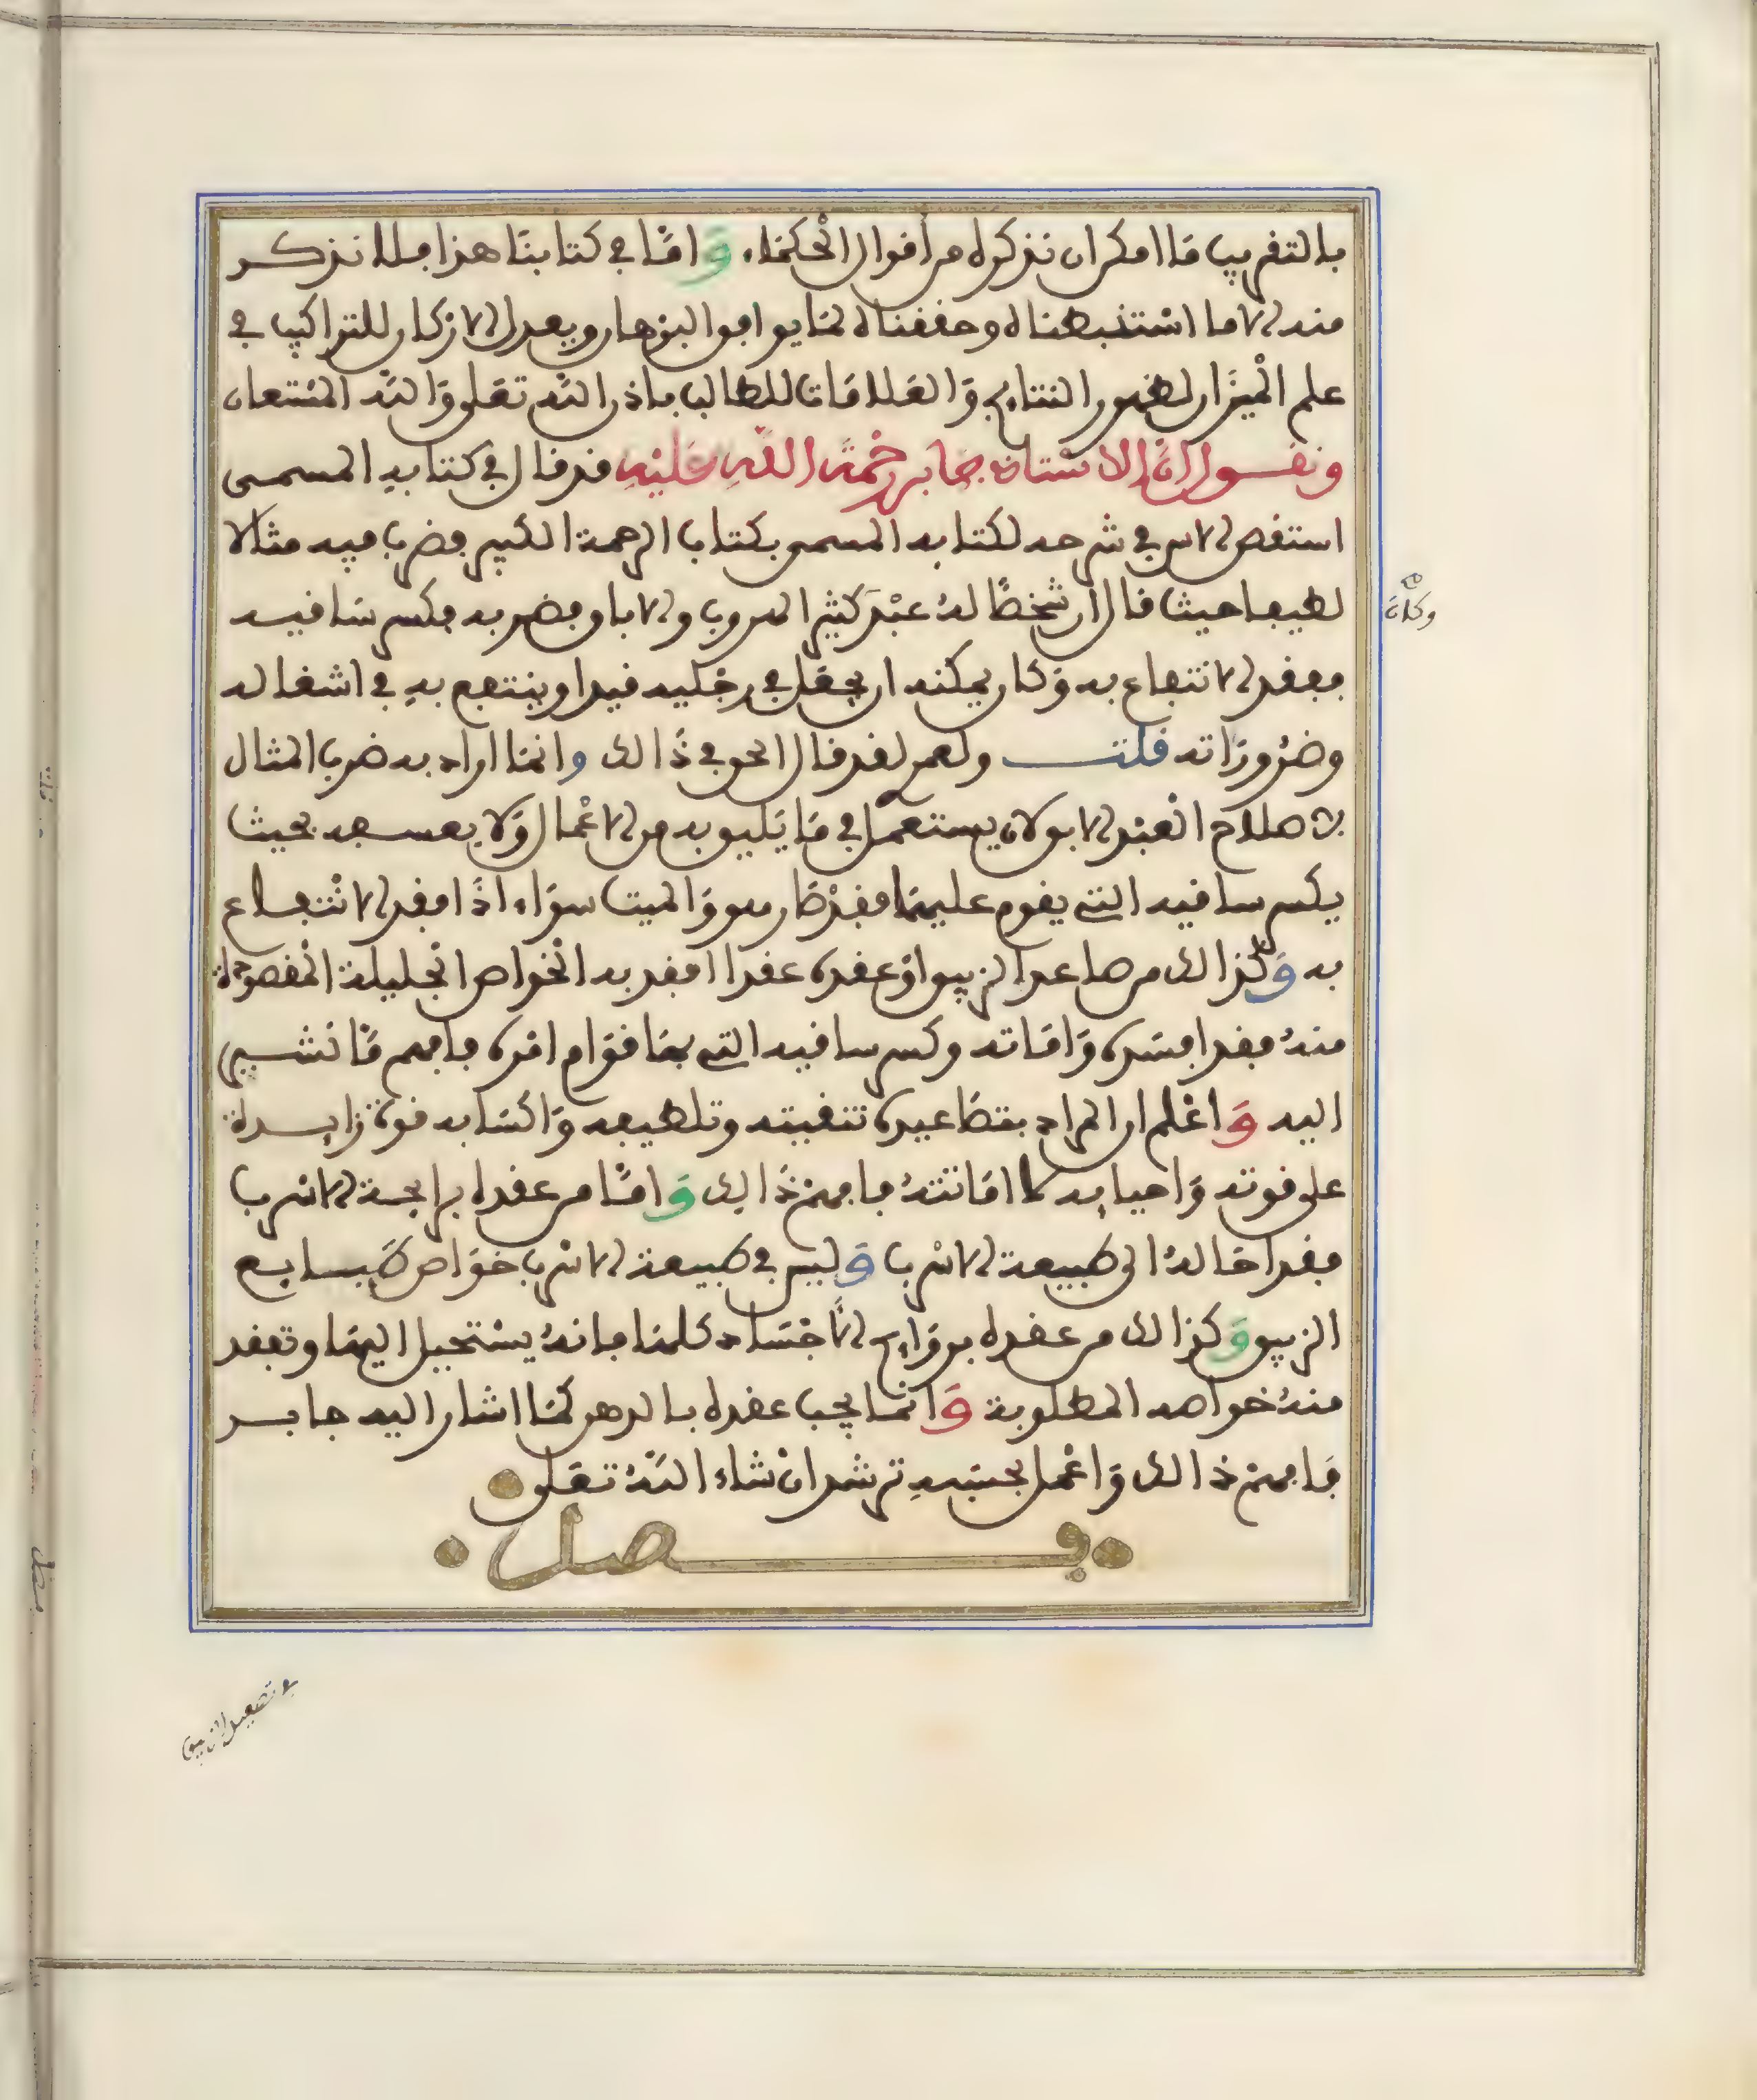 بالتقريب ما امكن ان نذكره من اقوال الحكماء، وَامّا في كتابنا هذا فلا نذكر
منه الا ما استنبطناه وحققناه لما يوافق البرهان ويعدل الاركان للتراكيب في
علم الميزان لظهور النتايج وَالعلامات للطالب باذن الله تعلى وَالله المستعان
ونقول ان الاستاذ جابر رحمة الله عليه قد قال في كتابه المسمى
استقص الاس في شرحه لكتابه المسمى بكتاب الرحمة الكبير وضرب فيه مثالا
لطيفا حيث قال ان شخصًا لهُ عبْد كثير الهروب والاباق فضربه فكسر ساقيه
ففقد الانتفاع به وَكان يمكنه ان يجعل في رجليه قيدا وينتفع به في اشغاله
وضروراته قلت ولعمر لقد قال الحق في ذَالك وانما اراد به ضرب المثال
بن صلاح العبد الابق لان يستعمل في مَا يَليق به من الاعْمال وَلا يعسفه بحيث
يكسر ساقيه التي يقوم عليهمَا فقدْ صَار هو وَالميت سوَاء اذَا فقد الانتفاع
به وَكذالك من صاعد الزيبق اوْ عقده عقدا افقد به الخواص الجليلة المقصودة
منهُ فقد افسده وَامَاته وكسر ساقيه التي بهَا قوَام امْره فافهم مَا نشير
اليه وَاعْلم ان المراد بتصَاعيده تنقيته وتلطيفه وَاكسَابه قوة زايدة
على قوته وَاحيايه لا امَاتتهُ فافهمْ ذَالك وَامّا من عقده برايحة الاسْرب
فقد احَالهُ الى طبيعة الاسْرب وَليس في طبيعة الاسْرب خوَاص طبَايع
الزيبق وَكذالك من عقده بروَايح الاجْسَاد كلهَا فانهُ يستحيل اليهَا وتفقد
منهُ خواصه المطلوبة وَانّما يجب عقده بالدهن كمَا اشار اليه جابر
فافهمْ ذالك وَاعْمل بحسَبِه ترشد انْ شاء اللهُ تعَلى
فصل
وكان
في تصعيد الزيبق